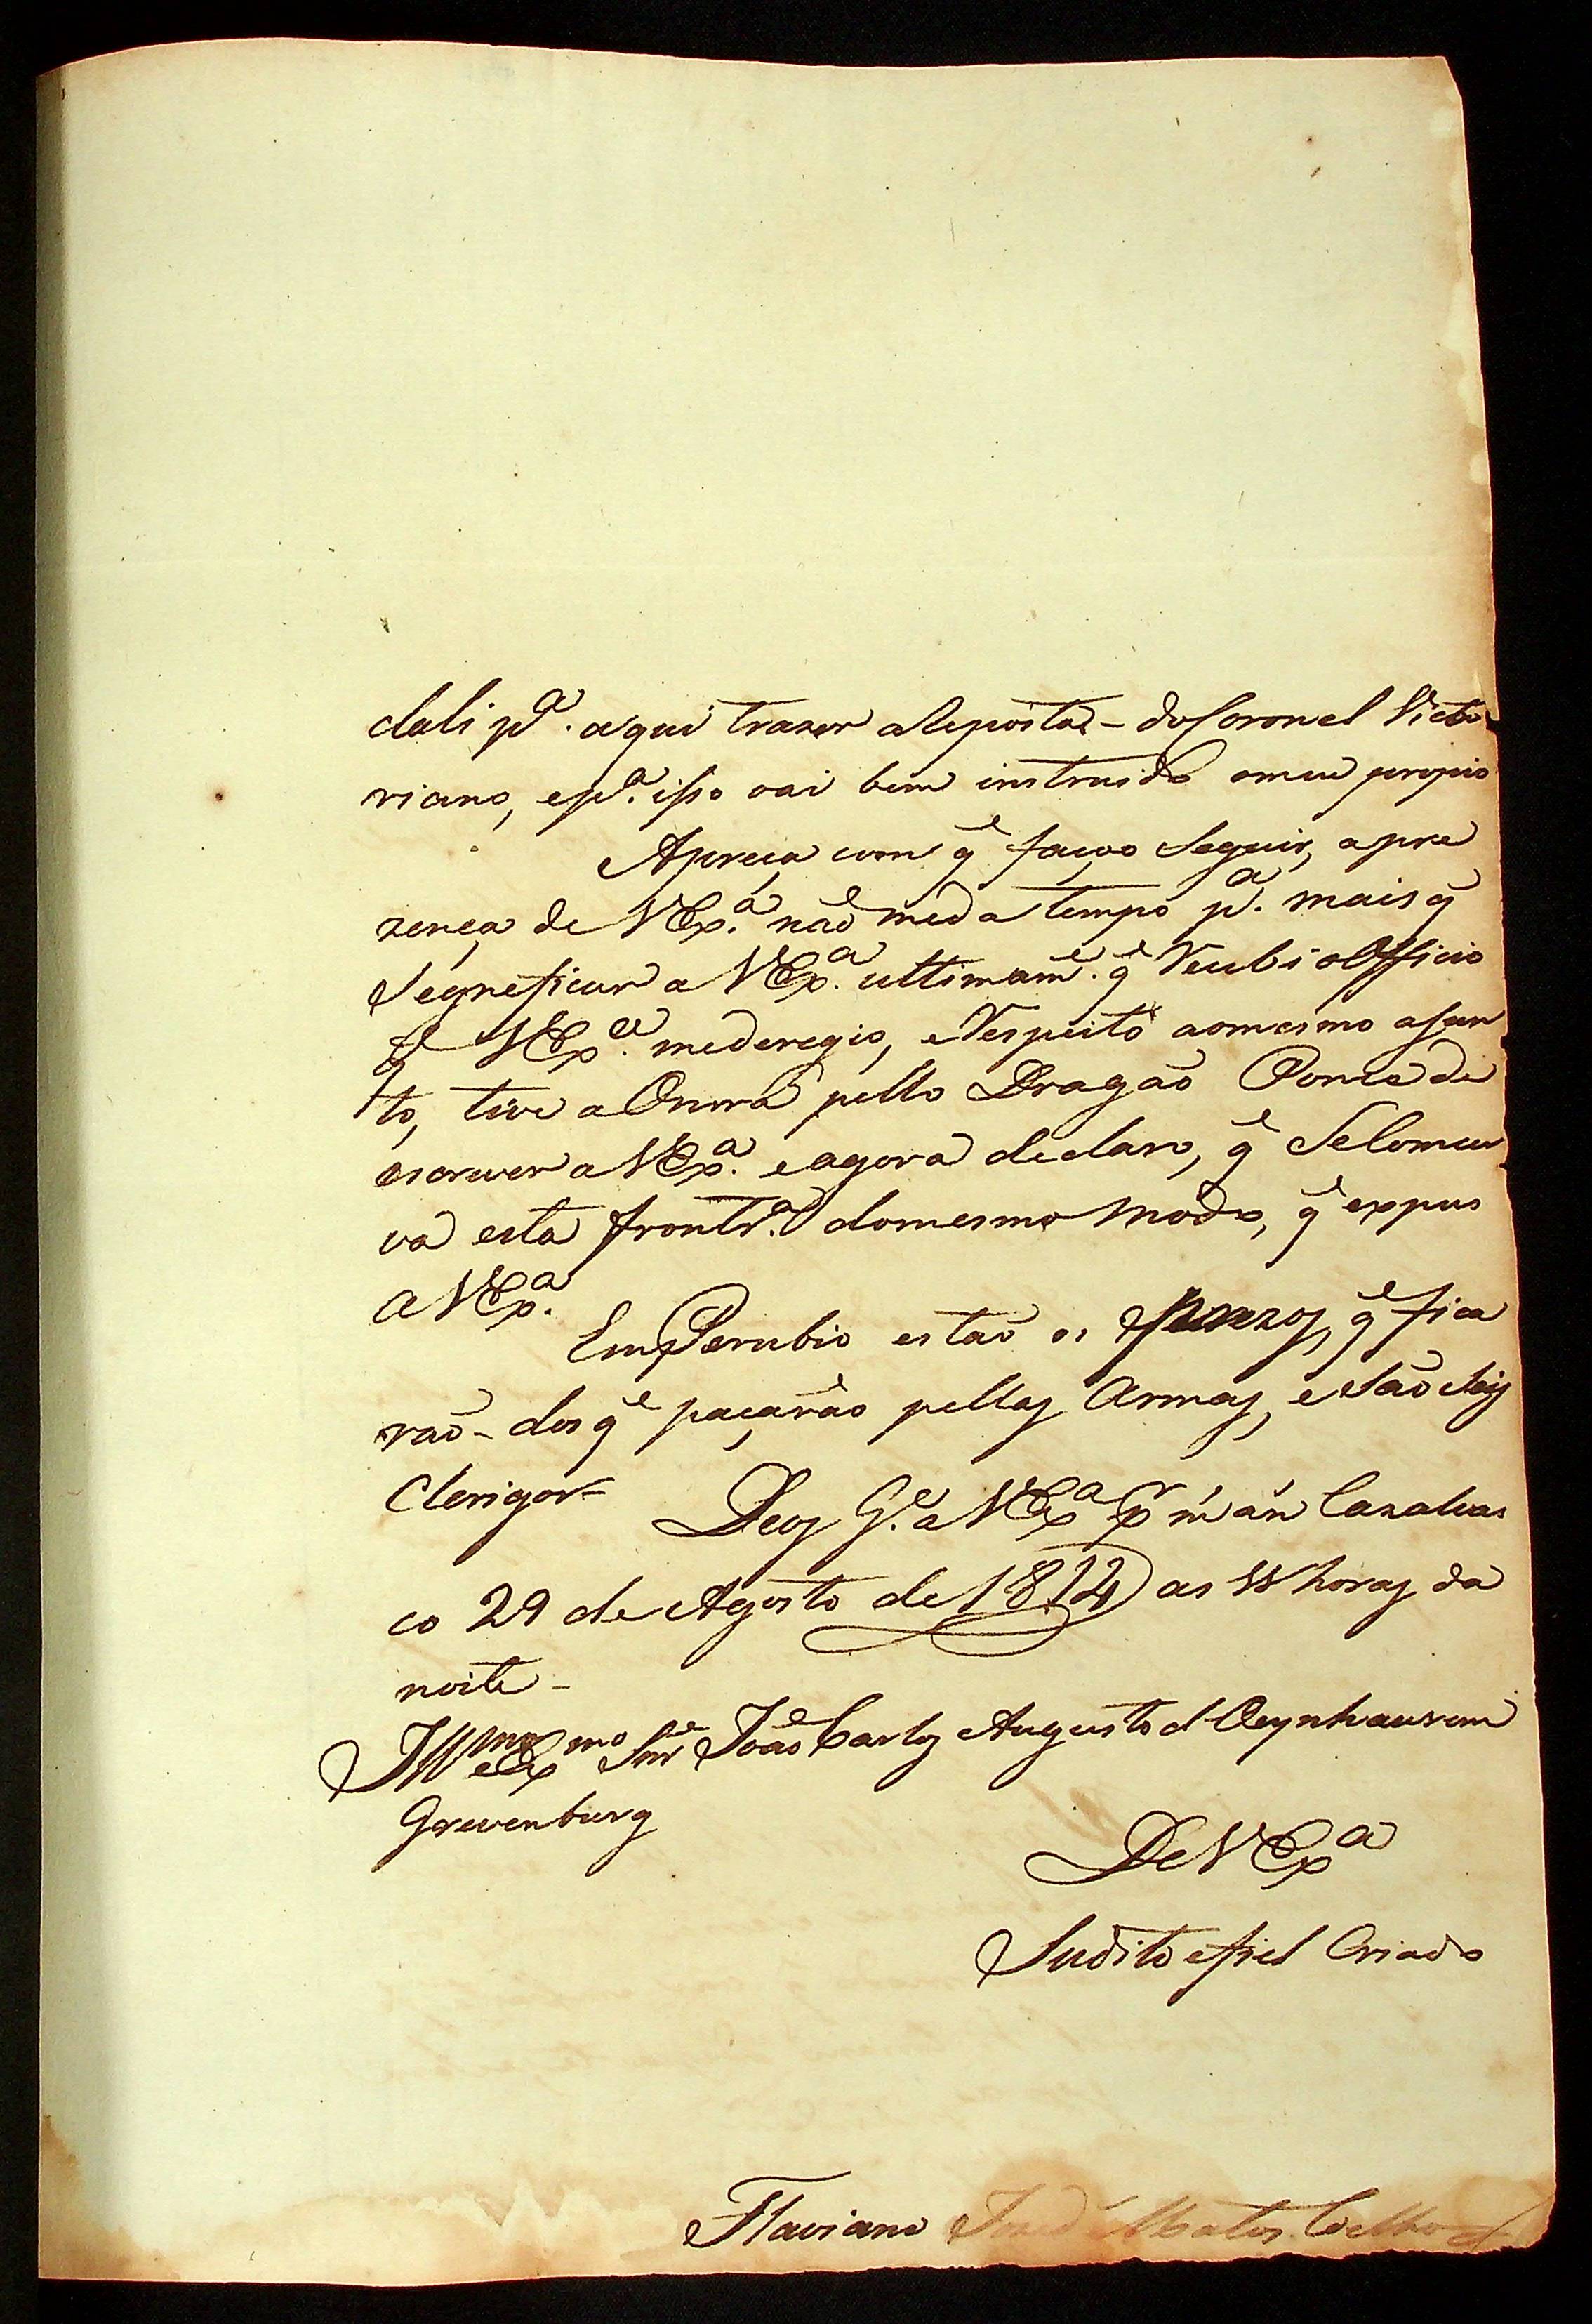 dali pª. aqui traser aReposta - doCoronel Victo
riano, epª. isso vai bem instruido omeu propio
Apreça com q̃ faço Seguir, apre
zença de VExª. não meda tempo pª. mais q̃
Segneficar a VExª. ultimamẽ. q̃ Recebi oOfficio
q̃ VExª. mederegio, eRespeito aomesmo asun
to, tive aOnrra pello Dragão Ponce de
escrever aVExª. eagora declaro, q̃ Se
va esta frontrª. domesmo modo, q̃ expus
a VExª.
Em estão os prezos, q̃ fica
rão - dos q̃ paçarão pellas Armas, eSão
Clerigos
Deos G.e a VExª m. an. Casalvas
co 29 de Agosto de 1814 as 11 horas da
noite -
Illmo eExmo Snr João Carlos Augusto d Oeynhausem
Grevenburg
DeVExª
Sudito efiel Criado
Flaviano José Matos Coelho